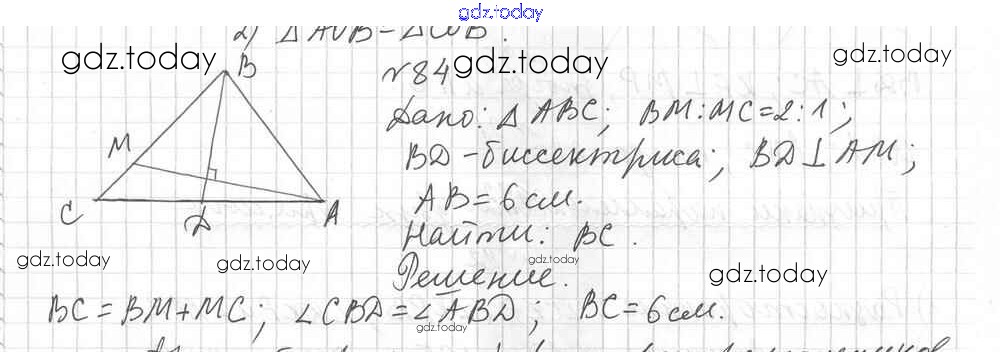 gdz.today
2) △AOB = △COB.
gdz.today
№84
gdz.today
gdz.today
B
Дано: △ABC; BM:MC=2:1;
M
BD - биссектриса; BD⊥AM;
AB=6см.
C
D
A
Найти: BC.
gdz.today
gdz.today
gdz.today
gdz.today
Решение.
BC=BM+MC; ∠CBD=∠ABD; BC=6см.
gdz.today